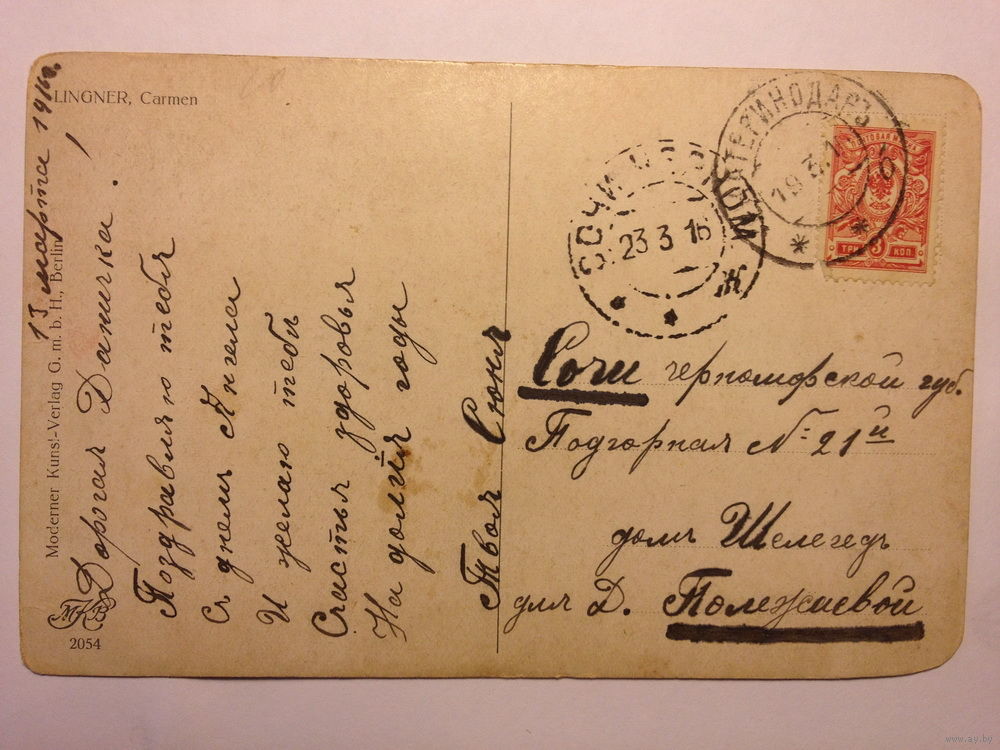 LINGNER, Carmen
Moderner Kunst-Verlag G. m. b. H., Berlin
MKB
2054
13 марта 1916г.
Дорогая Даничка!
Поздравляю тебя
Съ днемъ Ангела
И желаю тебѣ
Счастья здоровья
На долгія годы
Твоя Сюня
ЕКАТЕРИНОДАРЪ
19 3 16
СОЧИ ЧЕРН
23 3 16
ПОЧТОВАЯ МАРКА
ТРИ 3 КОП
Сочи черноморской губ.
Подгорная № 21й
домъ Шелегедъ
для Д. Полежаевой
www.ay.by